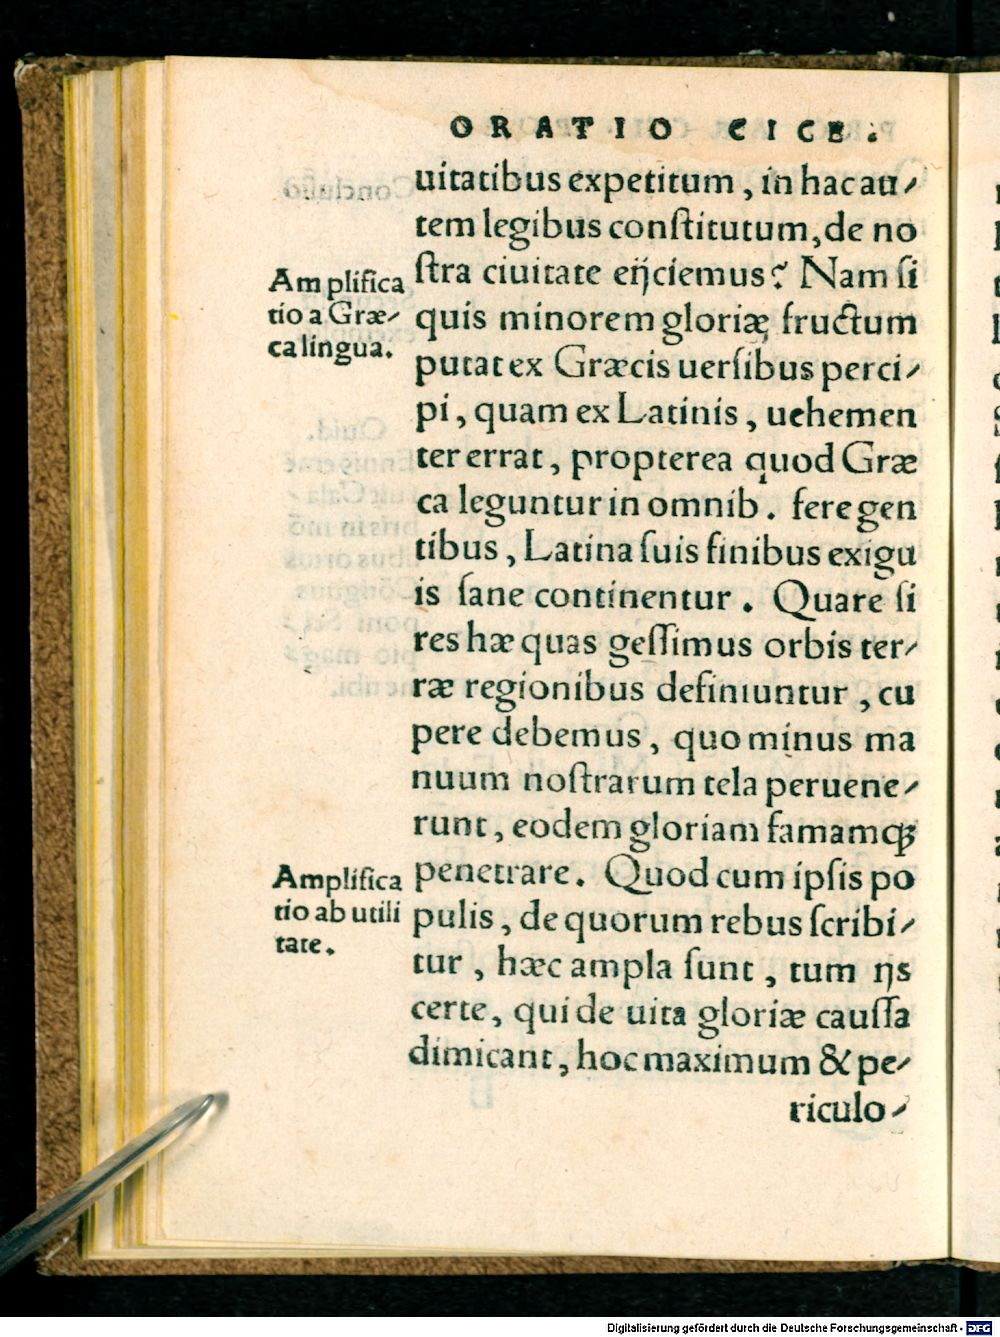 ORATIO CICE.
uitatibus expetitum, in hac au-
tem legibus conſtitutum, de no
ſtra ciuitate eijciemus? Nam ſi
quis minorem gloriæ fructum
putat ex Græcis uerſibus perci-
pi, quam ex Latinis, uehemen
ter errat, propterea quod Græ
ca leguntur in omnib. fere gen
tibus, Latina ſuis finibus exigu
is ſane continentur. Quare ſi
res hæ quas geſſimus orbis ter-
ræ regionibus definiuntur, cu
pere debemus, quo minus ma
nuum noſtrarum tela peruene-
runt, eodem gloriam famamqꝫ
penetrare. Quod cum ipſis po
pulis, de quorum rebus ſcribi-
tur, hæc ampla ſunt, tum ijs
certe, qui de uita gloriæ cauſſa
dimicant, hoc maximum & pe-
riculo-
Amplifica
tio a Græ-
ca lingua.
Amplifica
tio ab utili
tate.
Digitalisierung gefördert durch die Deutsche Forschungsgemeinschaft - DFG